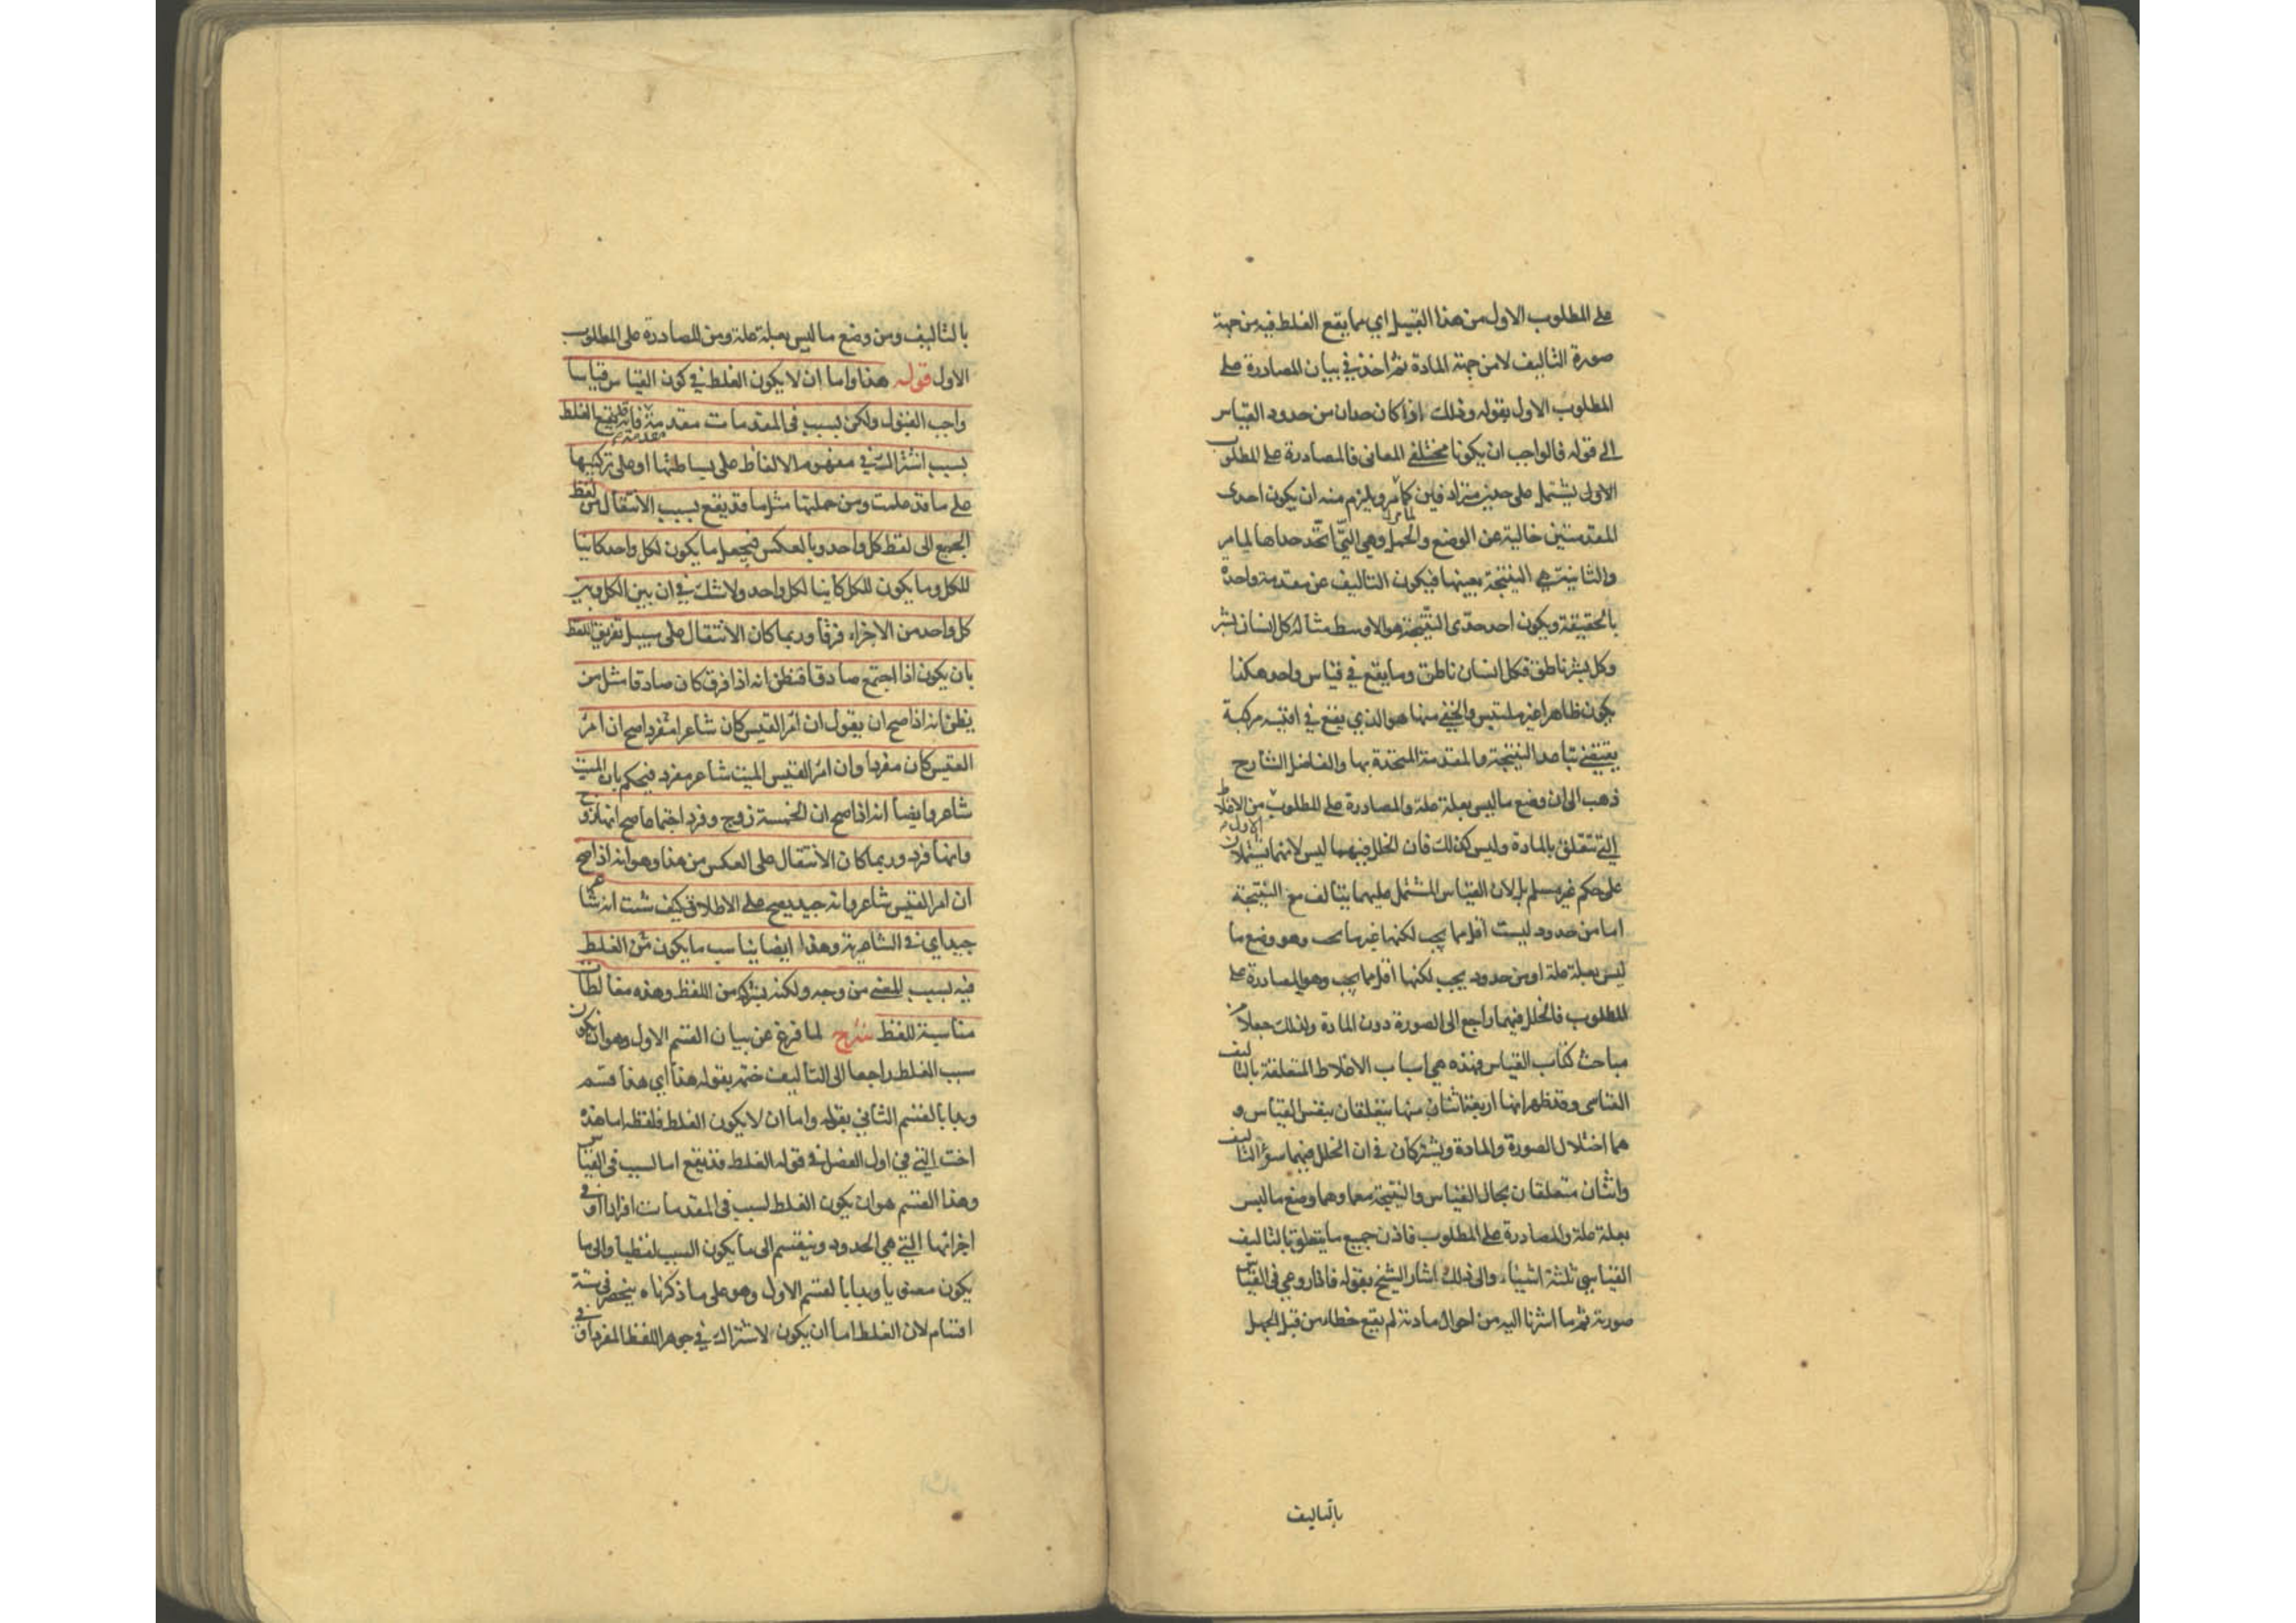 على المطلوب الاول من هذا القبيل اي مما يقع الغلط فيه من جهة
صورة التاليف لا من جهة المادة ثم اخذ في بيان المصادرة على
المطلوب الاول بقوله وذلك اذا كان حدان من حدود القياس
الى قوله فالواجب ان يكونا مختلفي المعاني فالمصادرة على المطلوب
الاول يشتمل على حدين مترادفين كما مر ويلزم منه ان يكون احدى
المقدمتين خالية عن الوضع والحمل وهي التي اتحد حداها لما مر
والثانية هي النتيجة بعينها فيكون التاليف عن مقدمة واحدة
بالحقيقة ويكون احد حدى النتيجة هو الاوسط مثاله كل انسان بشر
وكل بشر ناطق فكل انسان ناطق وما يقع في قياس واحد هكذا
يكون ظاهرا غير ملتبس والخفي منها هو الذي يقع في اقيسة مركبة
يقتضي تباعد النتيجة والمقدمة المتحدة بها والفاضل الشارح
ذهب الى ان وضع ما ليس بعلة علة والمصادرة على المطلوب الاول من الاغلاط
التي تتعلق بالمادة وليس كذلك فان الخلل فيهما ليس لانهما يشتملان
على حكم غير مسلم بل لان القياس المشتمل عليهما يتالف مع النتيجة
اما من حدود ليست اقل مما يجب لكنها غير ما يجب وهو وضع ما
ليس بعلة علة او من حدود يجب لكنها اقل مما يجب وهو المصادرة على
المطلوب فالخلل فيهما راجع الى الصورة دون المادة ولذلك جعلا من
مباحث كتاب القياس فهذه هي اسباب الاغلاط المتعلقة بالتاليف
القياسي وقد ظهر انها اربعة اثنان منها يتعلقان بنفس القياس و
هما اختلال الصورة والمادة ويشتركان في ان الخلل فيهما سوء التاليف
واثنان متعلقان بحال القياس والنتيجة معا وهما وضع ما ليس
بعلة علة والمصادرة على المطلوب فاذن جميع ما يتعلق بالتاليف
القياسي ثلثة اشياء والى ذلك اشار الشيخ بقوله فاذا روعي في القياس
صورته ثم ما اشرنا اليه من احوال مادته لم يقع خطاء من قبل الجهل
بالتاليف
بالتاليف ومن وضع ما ليس بعلة علة ومن المصادرة على المطلوب
الاول قوله هذا واما ان لا يكون الغلط في كون القياس قياسا
واجب القبول ولكن بسبب في المقدمات مقدمة مقدمة فانه قد يقع الغلط
بسبب اشتراك في مفهوم الالفاظ على بساطتها او على تركيبها
على ما قد علمت ومن جملتها مثل ما قد يقع بسبب الانتقال من لفظ
الجميع الى لفظ كل واحد وبالعكس فيجعل ما يكون لكل واحد كاينا
للكل وما يكون للكل كاينا لكل واحد ولا شك في ان بين الكل وبين
كل واحد من الاجزاء فرقا وربما كان الانتقال على سبيل تفريق اللفظ
بان يكون اذا اجتمع صادقا فيظن انه اذا فرق كان صادقا مثل من
يظن انه اذا صح ان يقول ان امرء القيس كان شاعرا مفردا صح ان امرء
القيس كان مفردا وان امرء القيس الميت شاعر مفرد فيحكم بان الميت
شاعر وايضا انه اذا صح ان الخمسة زوج وفرد اجتماعا صح انها زوج
وانها فرد وربما كان الانتقال على العكس من هذا وهو انه اذا صح
ان امرء القيس شاعر وانه جيد يصح على الاطلاق كيف شئت انه شاعر
جيد اي في الشاعرية وهذا ايضا يناسب ما يكون من الغلط
فيه بسبب المعنى من وجه ولكنه بشركة من اللفظ وهذه مغالطات
مناسبة للفظ شرح لما فرغ عن بيان القسم الاول وهو ان يكون
سبب الغلط راجعا الى التاليف ختم بقوله هذا اي هذا قسم
وبدا بالقسم الثاني بقوله واما ان لا يكون الغلط فلفظه اما هذه
اخت التي في اول الفصل في قوله الغلط قد يقع اما لسبب في القياس
وهذا القسم هو ان يكون الغلط لسبب في المقدمات افرادا او في
اجزائها التي هي الحدود وينقسم الى ما يكون السبب لفظيا والى ما
يكون معنويا وبدا بالقسم الاول وهو على ما ذكرناه ينحصر في ستة
اقسام لان الغلط اما ان يكون لاشتراك في جوهر اللفظ المفرد او في